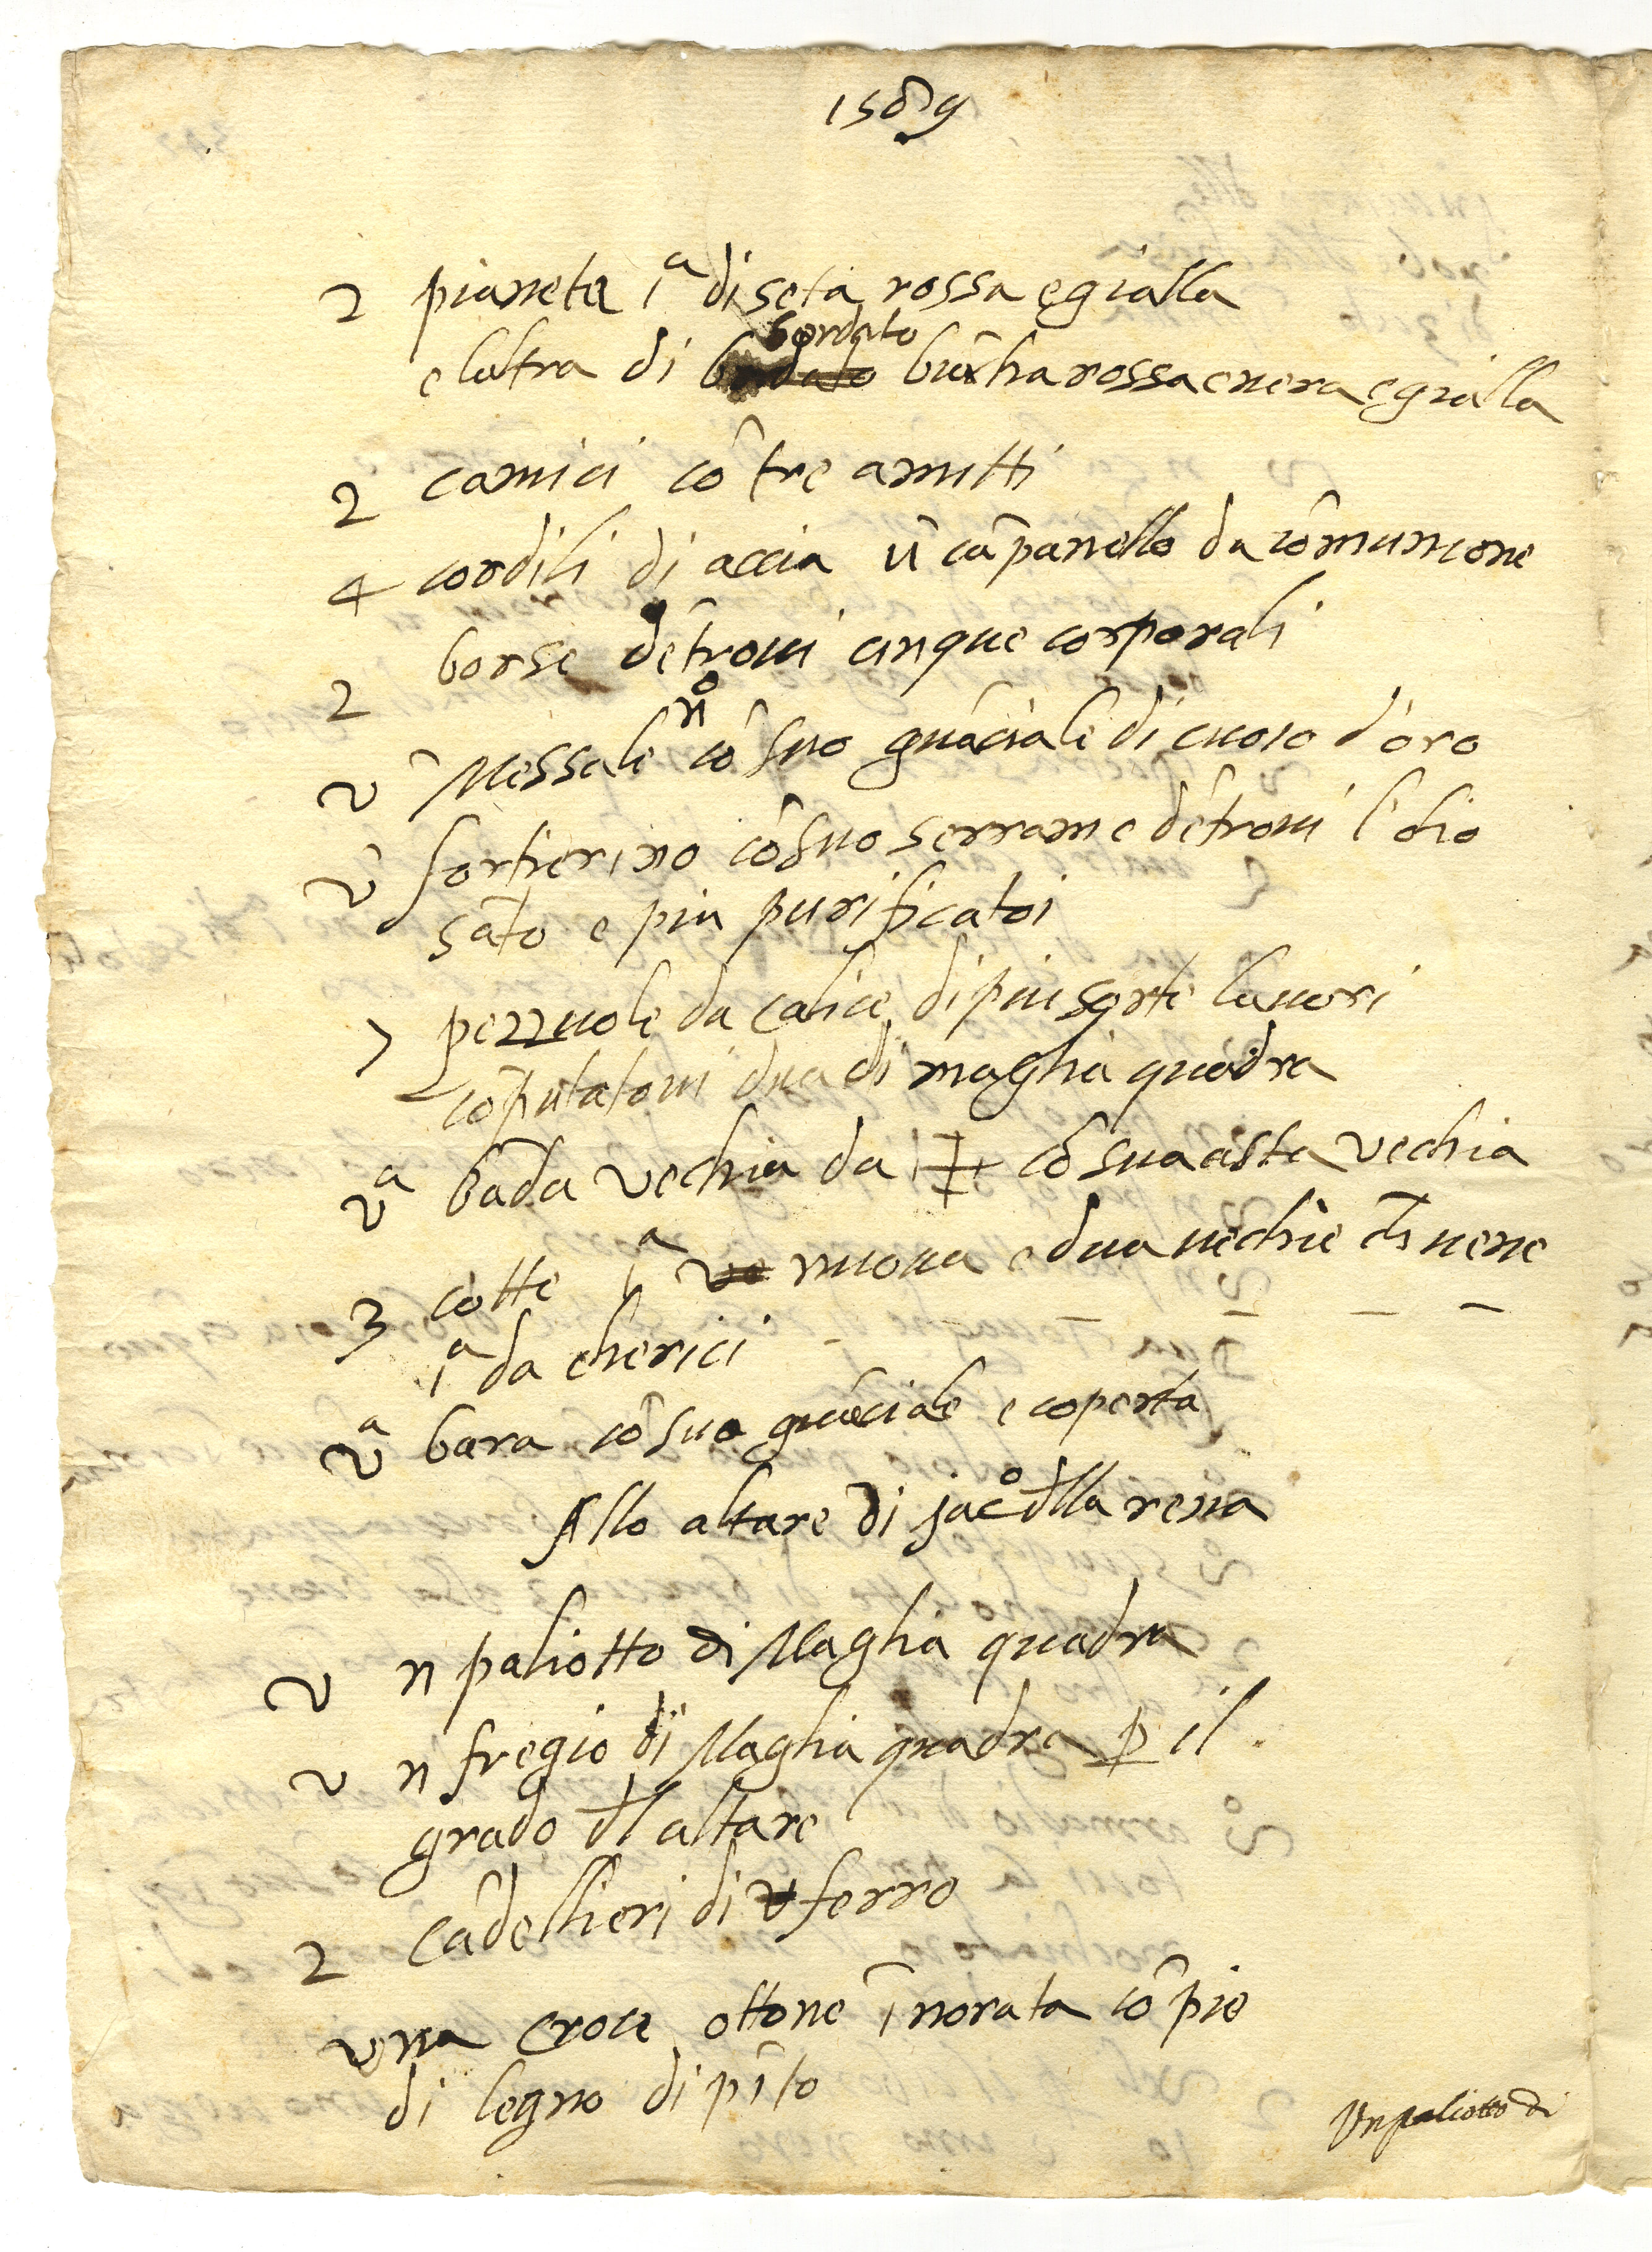 1589
2 pianeta 1ª di seta rossa e gialla
e laltra di bordato bordato biãcha rossa e nera e gialla
2 camici cõ tre amitti
4 cordili di accia ũ cãpanello da cõmunione
2 borse dẽtrovi cinque corporali
ũ Messale nº cõ suo guãciale di cuoio d'oro
ũ fortierino cõ suo serrame dẽtrovi l'olio
sãto e più purificatoi
7 pezzuole da calice di più sorte lavori
cõputatovi dua di maglia quadra
vª bãda vechia da ‡ cõ sua asta vechia
3 cotte 1ª ve nuova e dua vechie ch̃ vene
1ª da cherici
vª bara cõ suo guãciale e coperta
Allo altare di jacº dlla rena
v n paliotto di Maglia quadra
v n fregio di Maglia quadra ꝑ il
grado dl altare
2 cãdellieri di ferro
una croce ottone ĩnorata cõ pie
di legno dipĩto
Un paliotto di